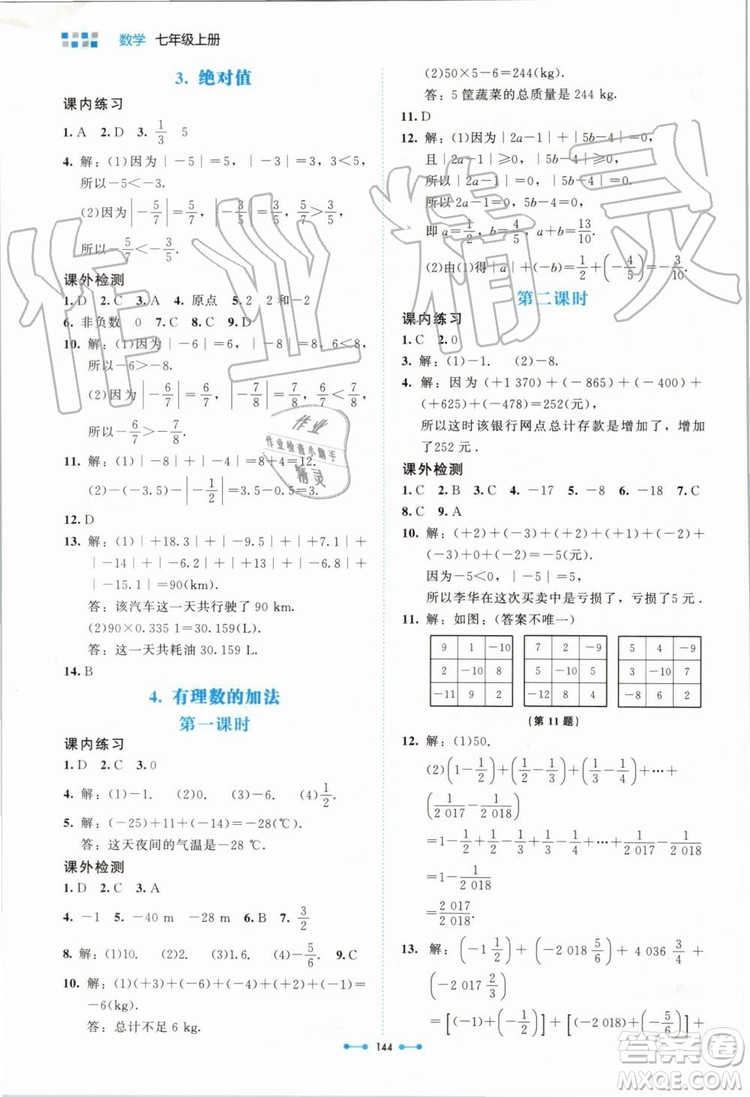 数学 七年级上册
3. 绝对值
课内练习
1. A 2. D 3. 1/3 5
4. 解：(1)因为|－5|＝5，|－3|＝3，3＜5，
所以－5＜－3.
(2)因为|－5/7|＝5/7，|－3/5|＝3/5，5/7＞3/5，
所以－5/7＜－3/5.
课外检测
1. D 2. C 3. A 4. 原点 5. 2 2和－2
6. 非负数 0 7. C 8. C 9. D
10. 解：(1)因为|－6|＝6，|－8|＝8，6＜8，
所以－6＞－8.
(2)因为|－6/7|＝6/7，|－7/8|＝7/8，6/7＜7/8，
所以－6/7＞－7/8.
11. 解：(1)|－8|＋|－4|＝8＋4＝12.
(2)－(－3.5)－|－1/2|＝3.5－1/2＝3.
12. D
13. 解：(1)|＋18.3|＋|－9.5|＋|＋7.1|＋
|－14|＋|－6.2|＋|＋13|＋|－6.8|＋
|－15.1|＝90(km).
答：该汽车这一天共行驶了 90 km.
(2)90×0.335 1＝30.159(L).
答：这一天共耗油 30.159 L.
14. B
4. 有理数的加法
第一课时
课内练习
1. D 2. C 3. 0
4. 解：(1)－10. (2)0. (3)－6. (4)1/2.
5. 解：(－25)＋11＋(－14)＝－28(℃).
答：这天夜间的气温是－28 ℃.
课外检测
1. D 2. C 3. A
4. －1 5. －40 m －28 m 6. B 7. 3/2
8. 解：(1)10. (2)－5. (3)0. (4)－5/6. 9. C
10. 解：(1)(＋3)＋(－6)＋(－4)＋(＋2)＋(－1)＝
－6(kg).
答：总计不足 6 kg.
(2)50×5－6＝244(kg).
答：5 筐蔬菜的总质量是 244 kg.
11. D
12. 解：(1)因为|2a－1|＋|5b－4|＝0，
且|2a－1|≥0，|5b－4|≥0，
所以 2a－1＝0，5b－4＝0.
即 a＝1/2，b＝4/5，a＋b＝13/10.
(2)由(1)得＋|a|＋(－b)＝1/2＋(－4/5)＝－3/10.
第二课时
课内练习
1. C 2. 0
3. 解：(1)－1. (2)－8.
4. 解：因为(＋1 370)＋(－865)＋(－400)＋
(＋625)＋(－478)＝252(元)，
所以这时该银行网点总计存款是增加的，
增加了 252 元.
课外检测
1. C 2. B 3. A 4. －17 5. －9 6. －18 7. C
8. C 9. A
10. 解：(＋2)＋(－3)＋(＋2)＋(＋1)＋(－2)＋
(－1)＋(－2)＋0＋(－2)＝－5(元).
因为－5＜0，|－5|＝5，
所以李华在这次买卖中是亏损了，亏损了 5 元.
11. 解：如图：(答案不唯一)
9 1 －10
2 －10 8
－11 9 2
5 4 －9
－10 8 2
5 －12 7
5 4 －9
4 －10 6
－9 6 3
(第 11 题)
12. 解：(1)50.
(2)(1－1/2)＋(1/2－1/3)＋(1/3－1/4)＋⋯＋
(1/2 017－1/2 018)
＝1－1/2＋1/2－1/3＋1/3－1/4＋⋯＋1/2 017－
1/2 018
＝1－1/2 018
＝2 017/2 018.
13. 解：(－1 1/2)＋(－2 018 5/6)＋4 036 3/4＋
(－2 017 2/3)
＝[(－1)＋(－1/2)]＋[(－2 018)＋(－5/6)]＋
144
作业精灵
作业
作业检查小助手
精灵
答案圈
MXQE.COM